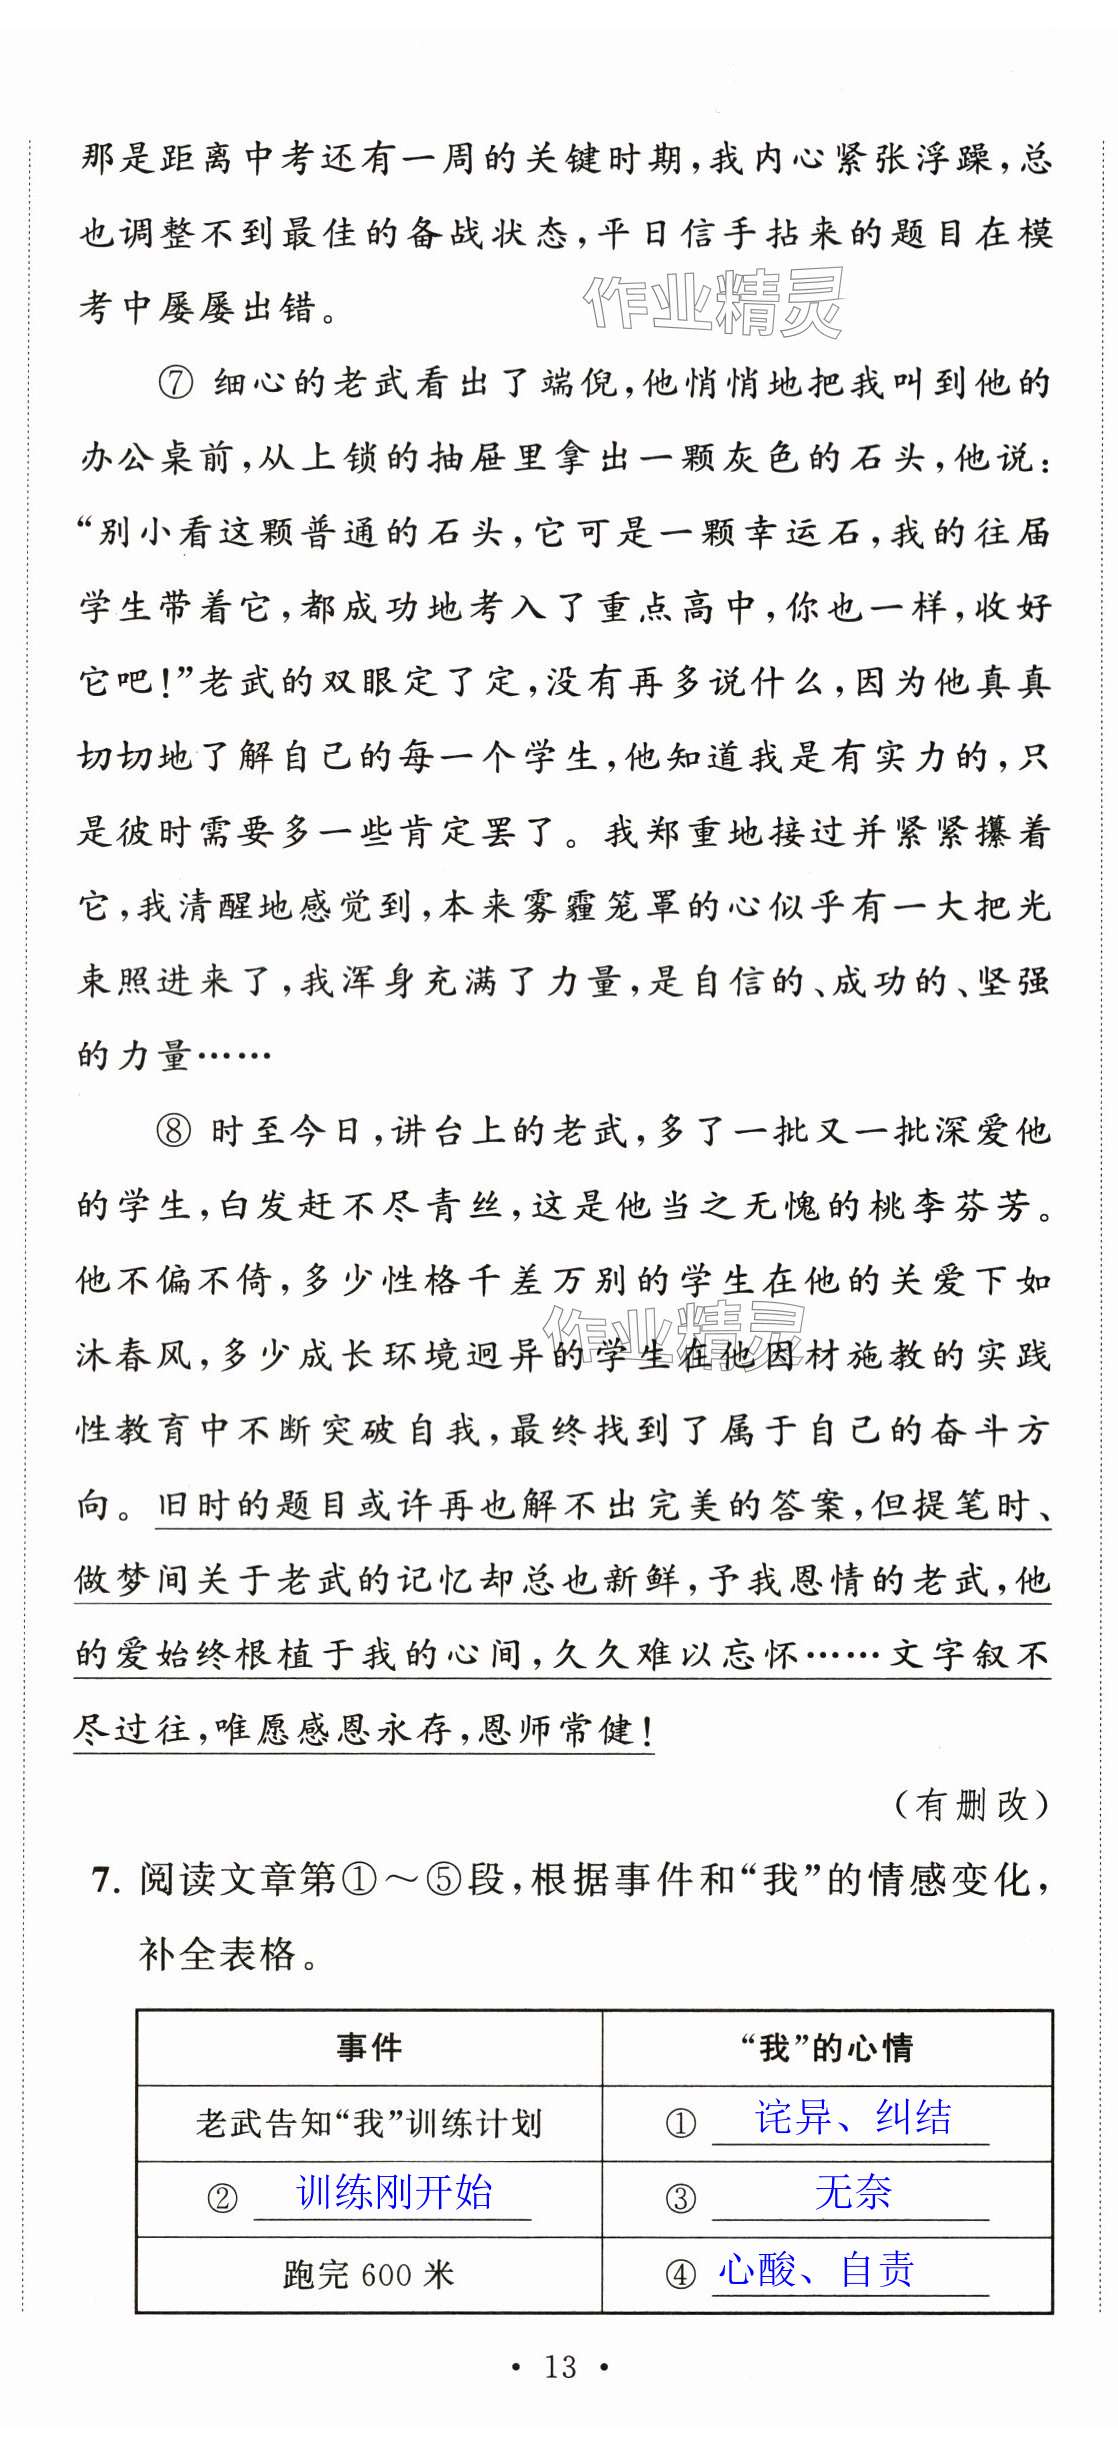 那是距离中考还有一周的关键时期,我内心紧张浮躁,总
也调整不到最佳的备战状态,平日信手拈来的题目在模
考中屡屡出错。
作业精灵
⑦ 细心的老武看出了端倪,他悄悄地把我叫到他的
办公桌前,从上锁的抽屉里拿出一颗灰色的石头,他说:
“别小看这颗普通的石头,它可是一颗幸运石,我的往届
学生带着它,都成功地考入了重点高中,你也一样,收好
它吧!”老武的双眼定了定,没有再多说什么,因为他真真
切切地了解自己的每一个学生,他知道我是有实力的,只
是彼时需要多一些肯定罢了。我郑重地接过并紧紧攥着
它,我清醒地感觉到,本来雾霾笼罩的心似乎有一大把光
束照进来了,我浑身充满了力量,是自信的、成功的、坚强
的力量……
⑧ 时至今日,讲台上的老武,多了一批又一批深爱他
的学生,白发赶不尽青丝,这是他当之无愧的桃李芬芳。
他不偏不倚,多少性格千差万别的学生在他的关爱下如
作业精灵
沐春风,多少成长环境迥异的学生在他因材施教的实践
性教育中不断突破自我,最终找到了属于自己的奋斗方
向。旧时的题目或许再也解不出完美的答案,但提笔时、
做梦间关于老武的记忆却总也新鲜,予我恩情的老武,他
的爱始终根植于我的心间,久久难以忘怀……文字叙不
尽过往,唯愿感恩永存,恩师常健!
(有删改)
7. 阅读文章第①～⑤段,根据事件和“我”的情感变化,
补全表格。
事件 “我”的心情
老武告知“我”训练计划 ① 诧异、纠结
② 训练刚开始 ③ 无奈
跑完600米 ④ 心酸、自责
• 13 •